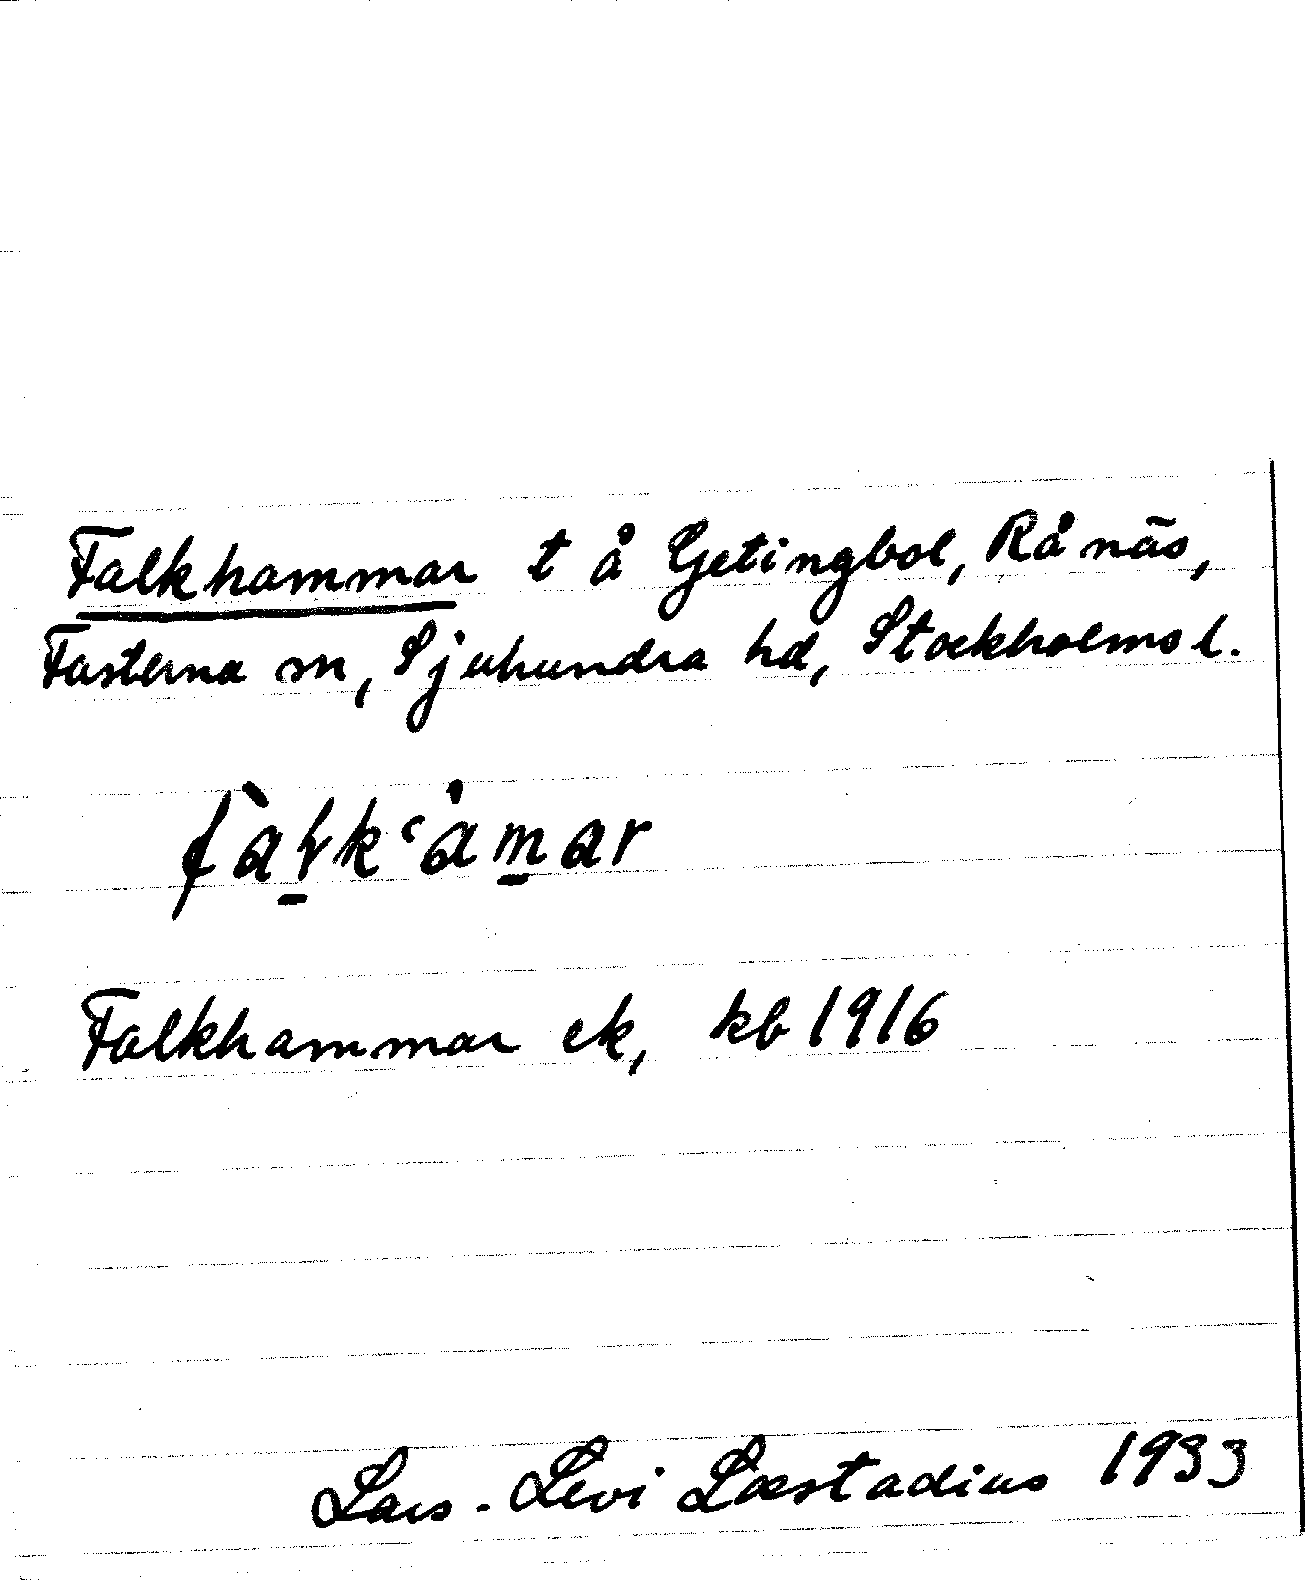 Falkhammar t å Getingbol, Rånäs,
Fasterna sn, Sjuhundra hd, Stockholms l.
Falkhammar ek, kb 1916
Lars-Levi Læstadius 1933